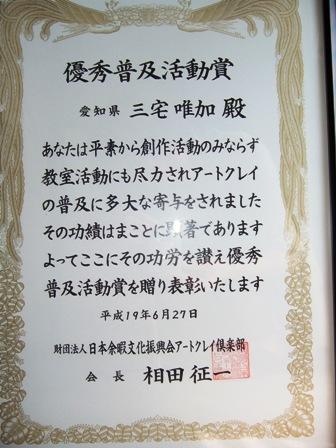 優秀普及活動賞
愛知県 三宅唯加 殿
あなたは平素から創作活動のみならず
教室活動にも尽力されアートクレイ
の普及に多大な寄与をされました
その功績はまことに顕著であります
よってここにその功労を讃え優秀
普及活動賞を贈り表彰いたします
平成19年6月27日
財団法人日本余暇文化振興会アートクレイ倶楽部
会長 相田征一